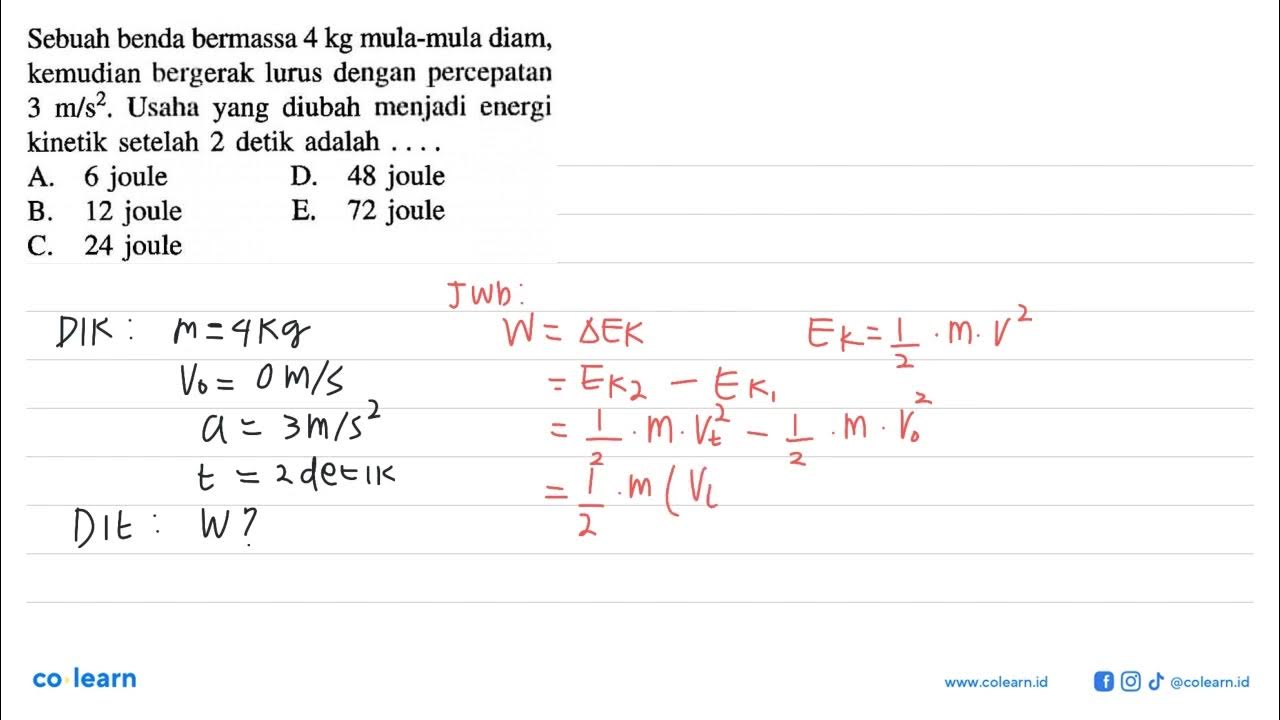 Sebuah benda bermassa 4 kg mula-mula diam,
kemudian bergerak lurus dengan percepatan
3 m/s². Usaha yang diubah menjadi energi
kinetik setelah 2 detik adalah . . . .
A. 6 joule D. 48 joule
B. 12 joule E. 72 joule
C. 24 joule
Jwb:
DIK: m = 4 Kg
V₀ = 0 m/s
a = 3 m/s²
t = 2 detik
DIt: W?
W = ΔEK
= EK₂ - EK₁
= 1/2 . m . Vt² - 1/2 . m . V₀²
= 1/2 . m (V
EK = 1/2 . m . V²
co learn
www.colearn.id
@colearn.id